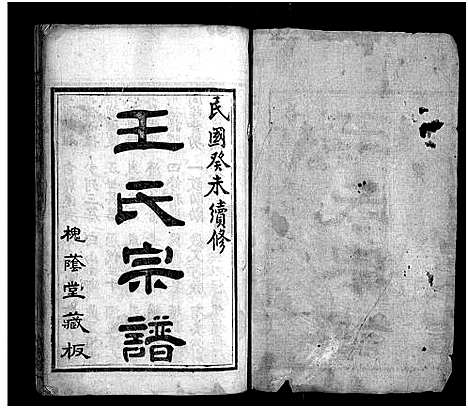 民國癸未續修
王氏宗譜
槐蔭堂藏板